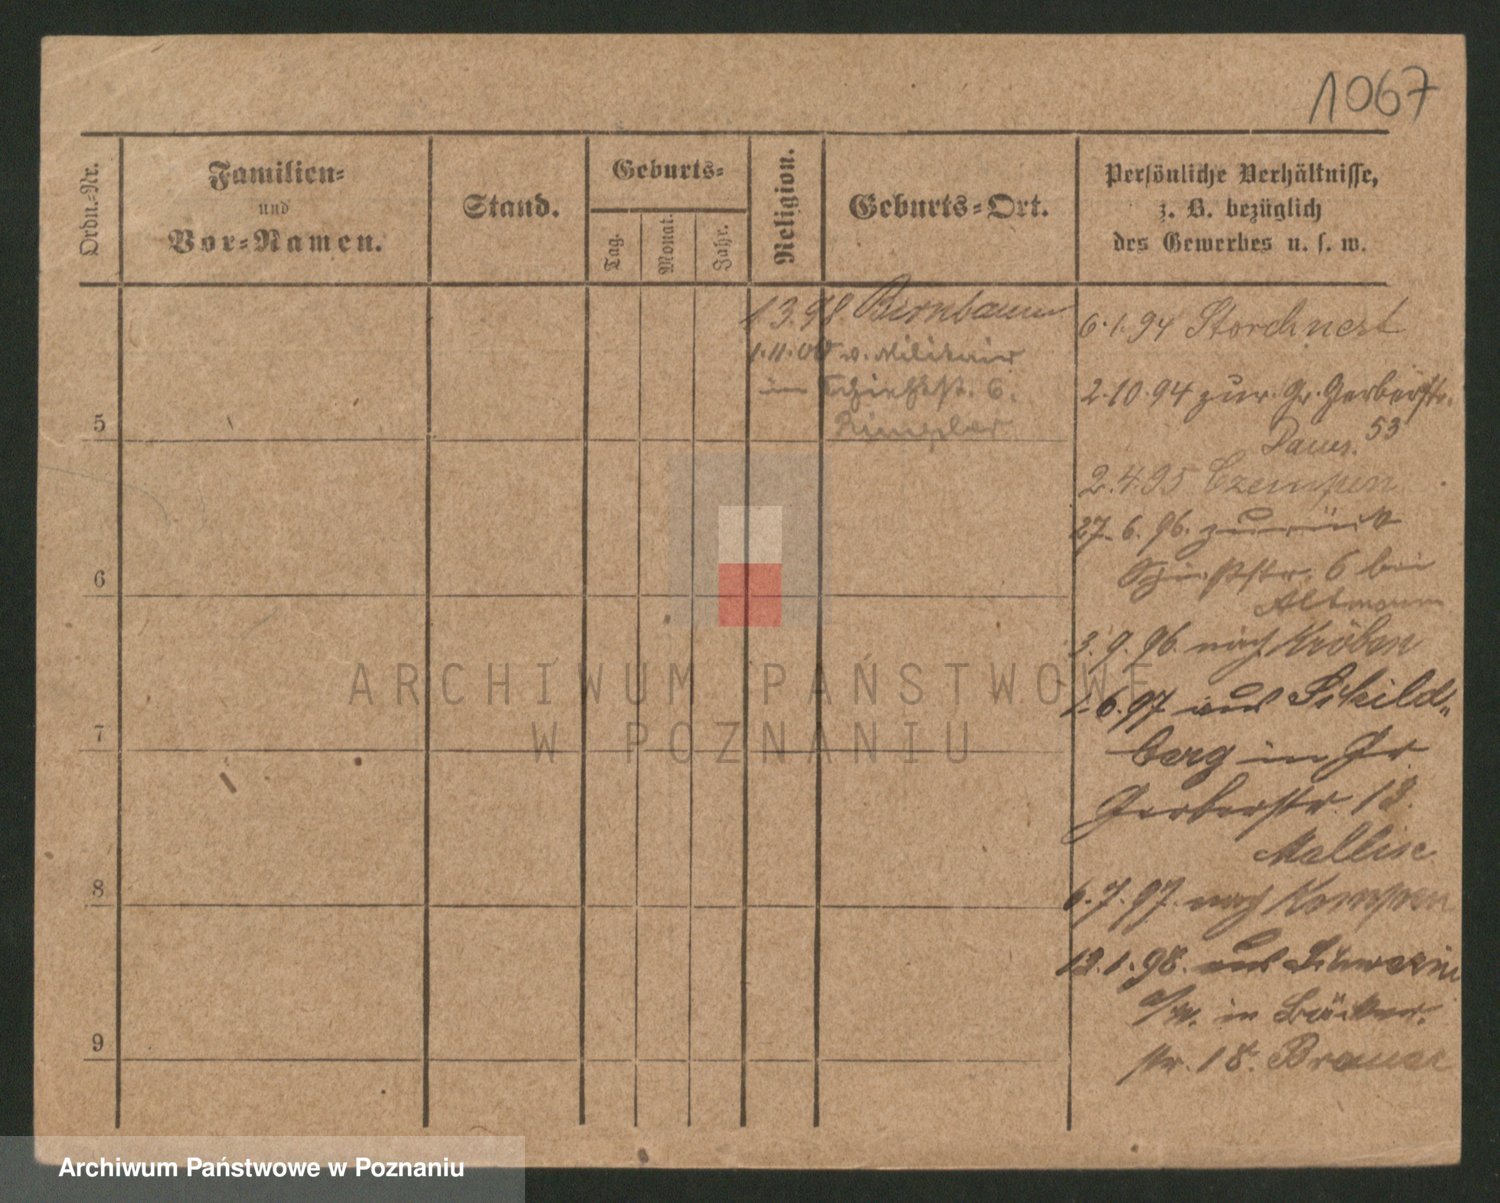 1067
Ordn.-Nr.
Familien-
und
Vor-Namen.
Stand.
Geburts-
Tag.
Monat.
Jahr.
Religion.
Geburts-Ort.
Persönliche Verhältnisse,
z. B. bezüglich
des Gewerbes u. s. w.
1.3.98 Birnbaum
1.11.00 v. Militair
im Schießstr. 6.
6.1.94 Storchnest
2.10.94 zur. Gr. Gerberstr.
53
2.4.95 Czempin
27.6.96. zurück
Schießstr. 6 bei
Altmann
3.9.96. nach Kröben
1.6.97 aus Schild-
berg in Gr.
Gerberstr. 13.
6.7.97. nach Kempen
13.1.98. aus Schwerin
a/W. in Bäcker-
str. 18. Brauer
5
6
7
8
9
ARCHIWUM PAŃSTWOWE
W POZNANIU
Archiwum Państwowe w Poznaniu